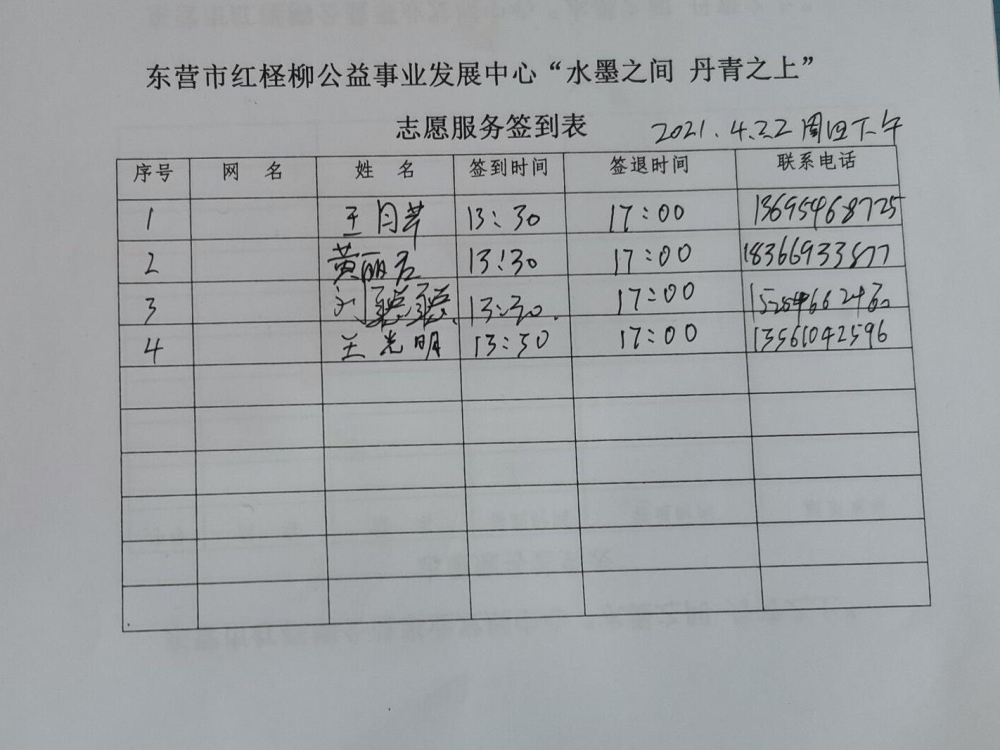 东营市红柽柳公益事业发展中心“水墨之间 丹青之上”
志愿服务签到表 2021.4.22周四下午
序号 网 名 姓 名 签到时间 签退时间 联系电话
1 王月苹 13:30 17:00 13695468725
2 黄丽君 13:30 17:00 18366933877
3 刘聪聪 13:30. 17:00
4 王光明 13:30 17:00 13561042596